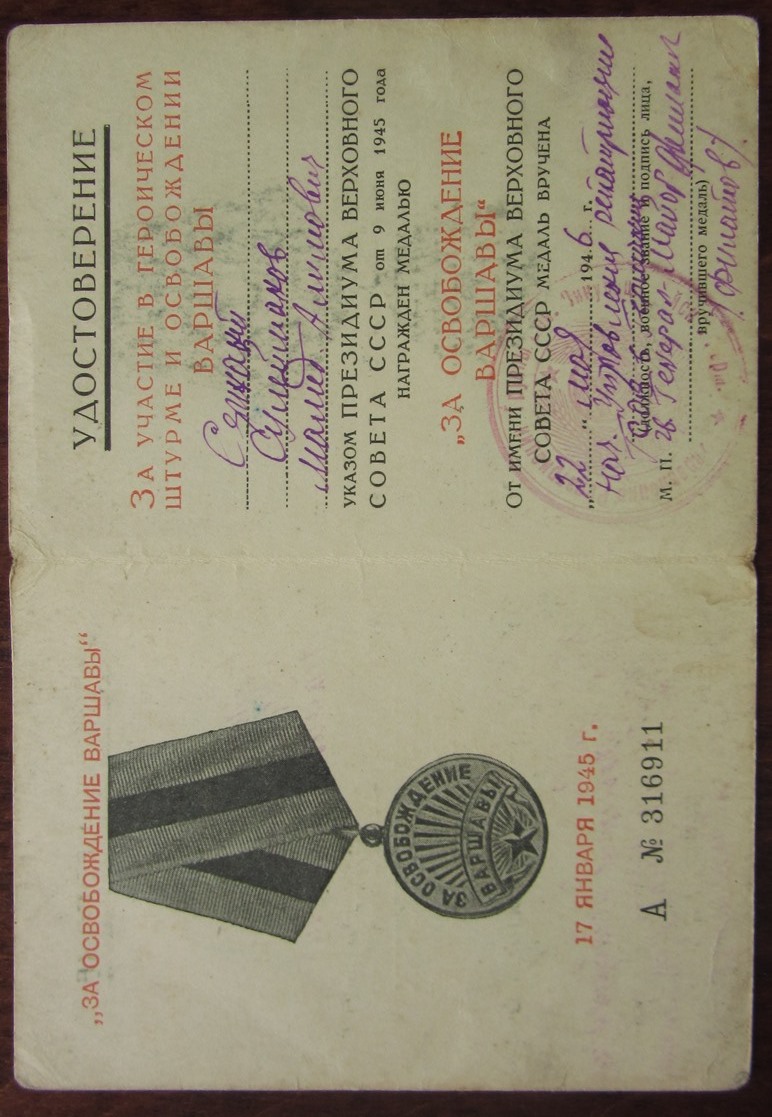 „ЗА ОСВОБОЖДЕНИЕ ВАРШАВЫ“
ЗА ОСВОБОЖДЕНИЕ
ВАРШАВЫ
17 ЯНВАРЯ 1945 г.
А № 316911
УДОСТОВЕРЕНИЕ
ЗА УЧАСТИЕ В ГЕРОИЧЕСКОМ
ШТУРМЕ И ОСВОБОЖДЕНИИ
ВАРШАВЫ
Сулейманов
Мамед Алимович
УКАЗОМ ПРЕЗИДИУМА ВЕРХОВНОГО
СОВЕТА СССР от 9 июня 1945 года
НАГРАЖДЕН МЕДАЛЬЮ
„ЗА ОСВОБОЖДЕНИЕ
ВАРШАВЫ“
ОТ ИМЕНИ ПРЕЗИДИУМА ВЕРХОВНОГО
СОВЕТА СССР МЕДАЛЬ ВРУЧЕНА
„22“ мая 1946 г.
Нач. Управления репатриации
(должность, военное звание и подпись лица,
М. П. Генерал-Майор
вручившего медаль)
(Филатов)